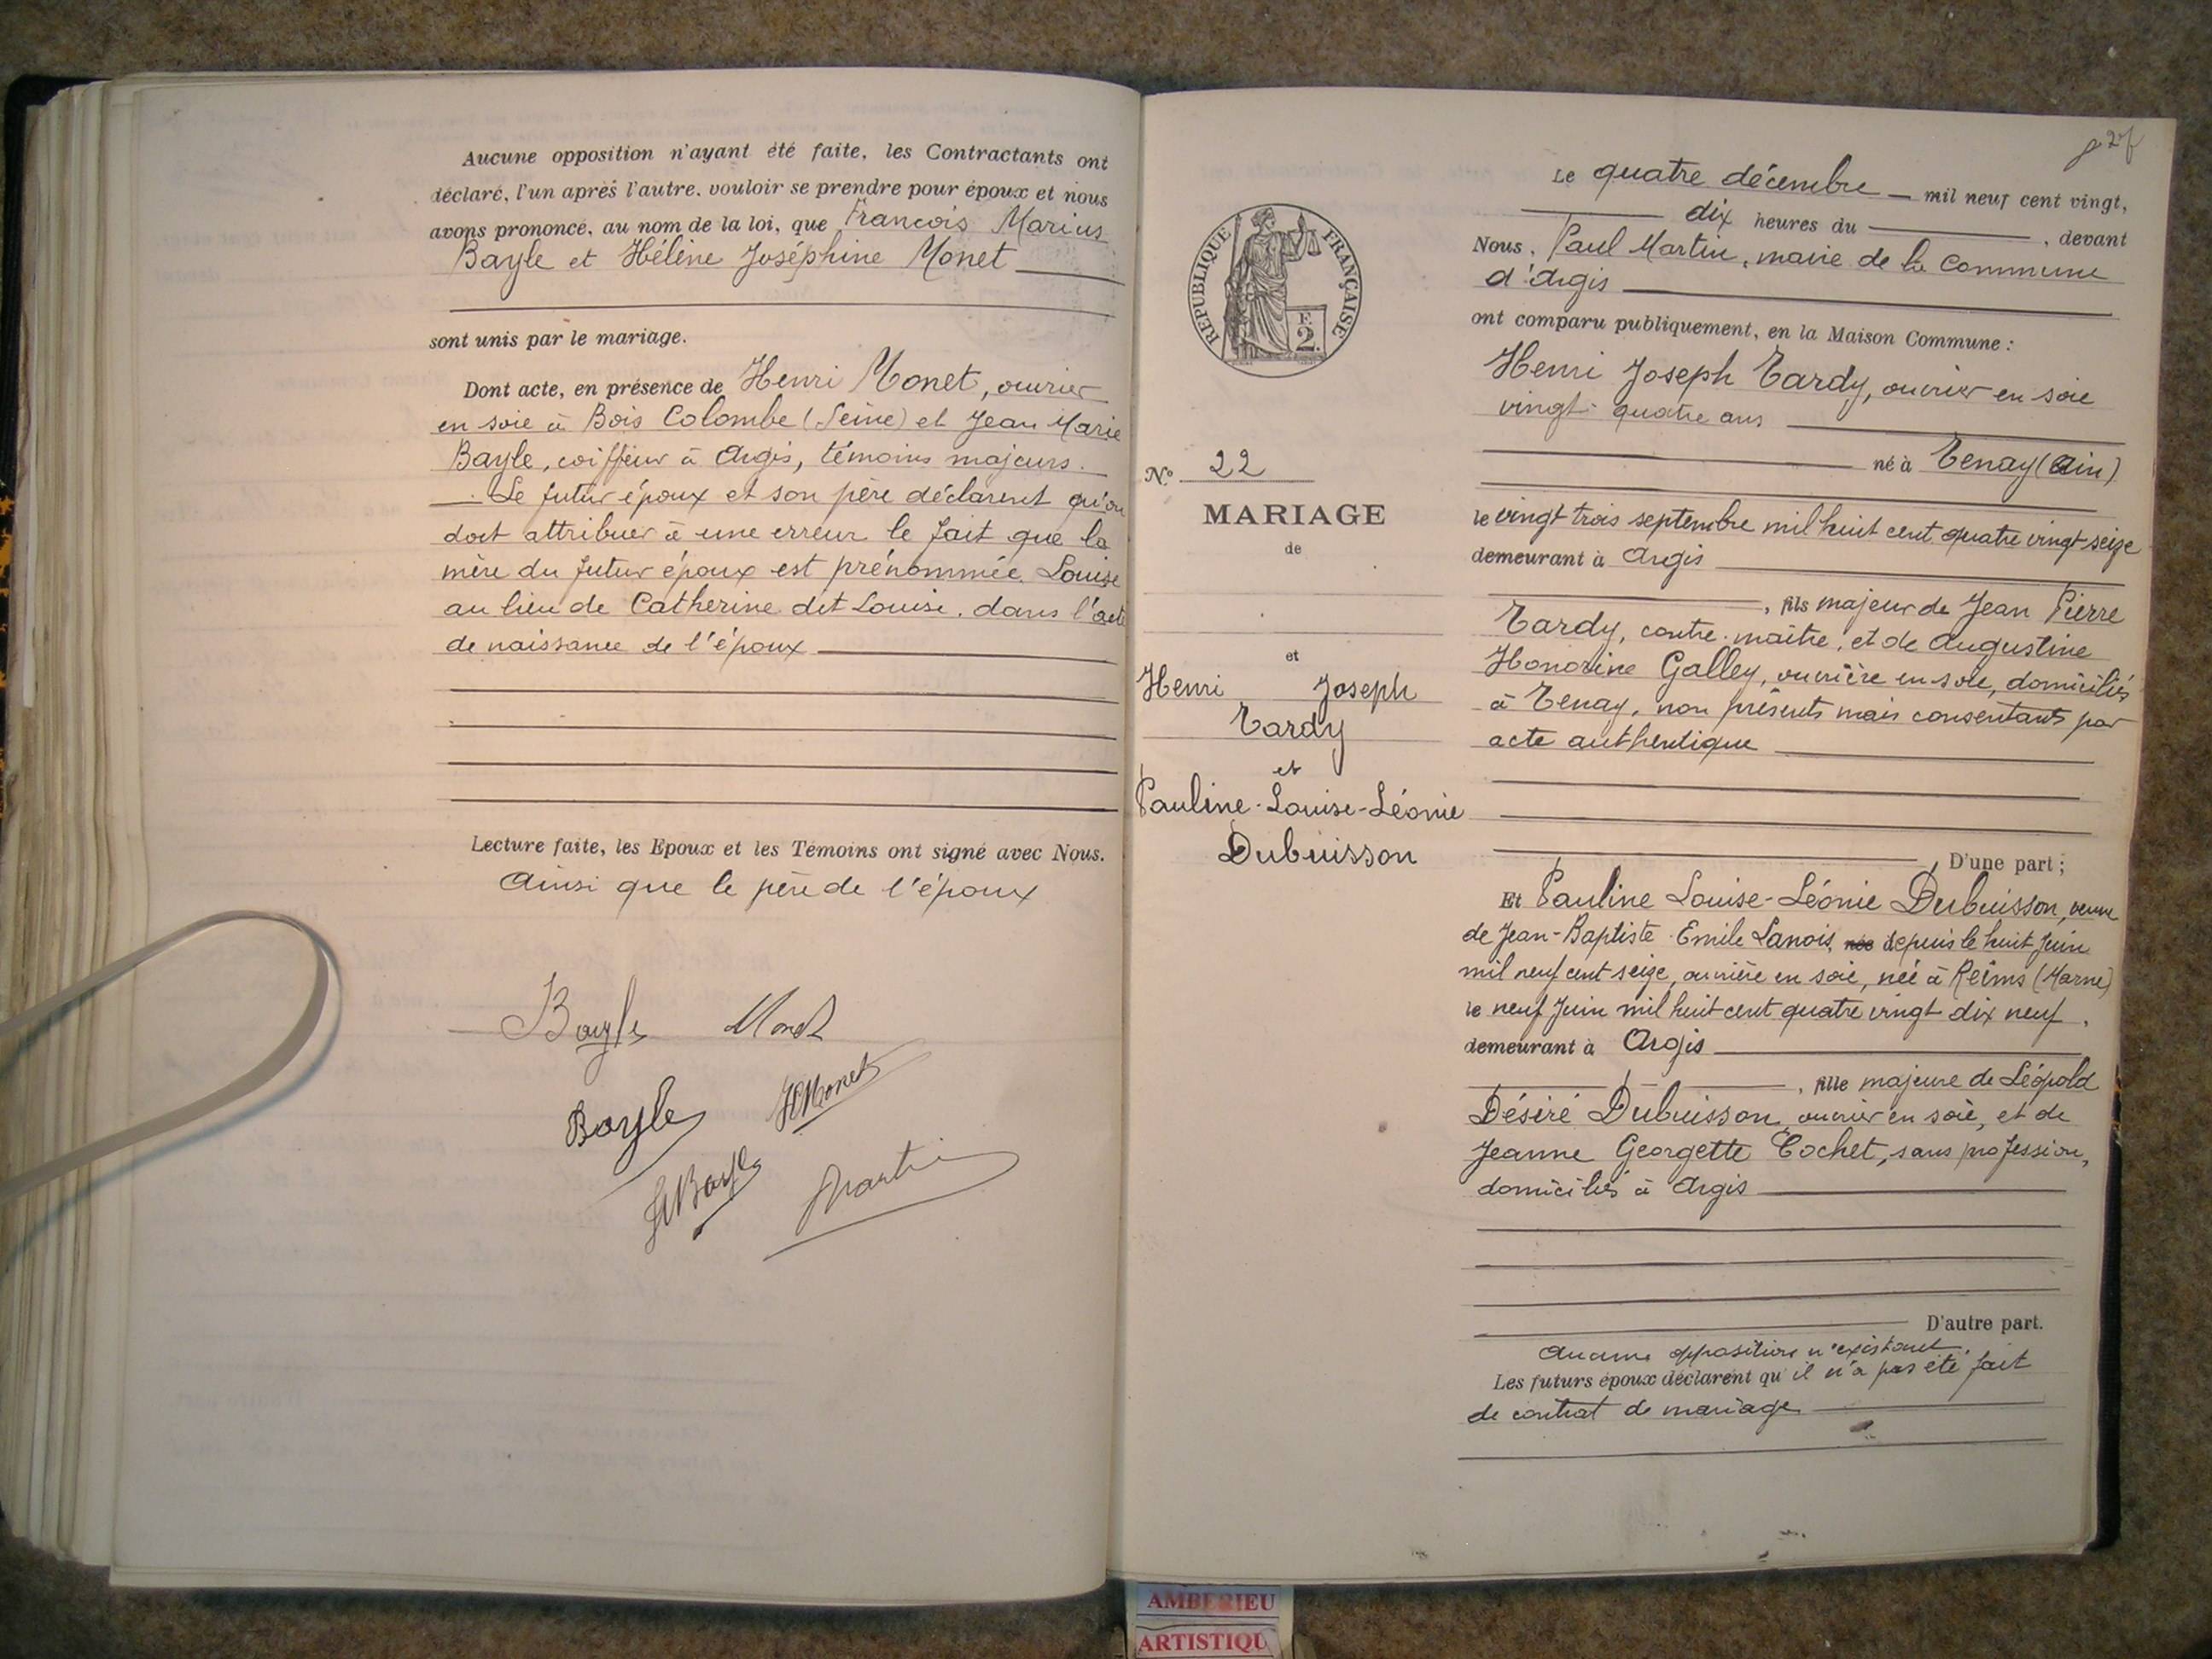 Aucune opposition n'ayant été faite, les Contractants ont
déclaré, l'un après l'autre, vouloir se prendre pour époux et nous
avons prononcé, au nom de la loi, que François Marius
Bayle et Hélène Joséphine Monet
sont unis par le mariage.
Dont acte, en présence de Henri Monet, ouvrier
en soie à Bois Colombe (Seine) et Jean Marie
Bayle, coiffeur à Argis, témoins majeurs.
Le futur époux et son père déclarent qu'on
doit attribuer à une erreur le fait que la
mère du futur époux est prénommée Louise
au lieu de Catherine dit Louise, dans l'acte
de naissance de l'époux
Lecture faite, les Epoux et les Témoins ont signé avec Nous.
Ainsi que le père de l'époux
Bayle Monet
Bayle HMonet
Bayle Martin
REPUBLIQUE FRANÇAISE
F.
2.
No 22
MARIAGE
de
et
Henri Joseph
Tardy
et
Pauline-Louise-Léonie
Dubuisson
Le quatre décembre mil neuf cent vingt,
dix heures du , devant
Nous, Paul Martin, maire de la commune
d'Argis
ont comparu publiquement, en la Maison Commune :
Henri Joseph Tardy, ouvrier en soie
vingt-quatre ans
né à Tenay (Ain)
le vingt trois septembre mil huit cent quatre vingt seize
demeurant à Argis
, fils majeur de Jean Pierre
Tardy, contre-maître, et de Augustine
Honorine Galley, ouvrière en soie, domiciliés
à Tenay, non présents mais consentants par
acte authentique
D'une part ;
Et Pauline Louise-Léonie Dubuisson, veuve
de Jean-Baptiste Emile Lanois, née depuis le huit Juin
mil neuf cent seize, ouvrière en soie, née à Reims (Marne)
le neuf Juin mil huit cent quatre vingt dix neuf,
demeurant à Argis
, fille majeure de Léopold
Désiré Dubuisson, ouvrier en soie, et de
Jeanne Georgette Cochet, sans profession,
domiciliés à Argis
D'autre part.
Aucune opposition n'existant
Les futurs époux déclarent qu'il n'a pas été fait
de contrat de mariage
AMBERIEU
ARTISTIQU